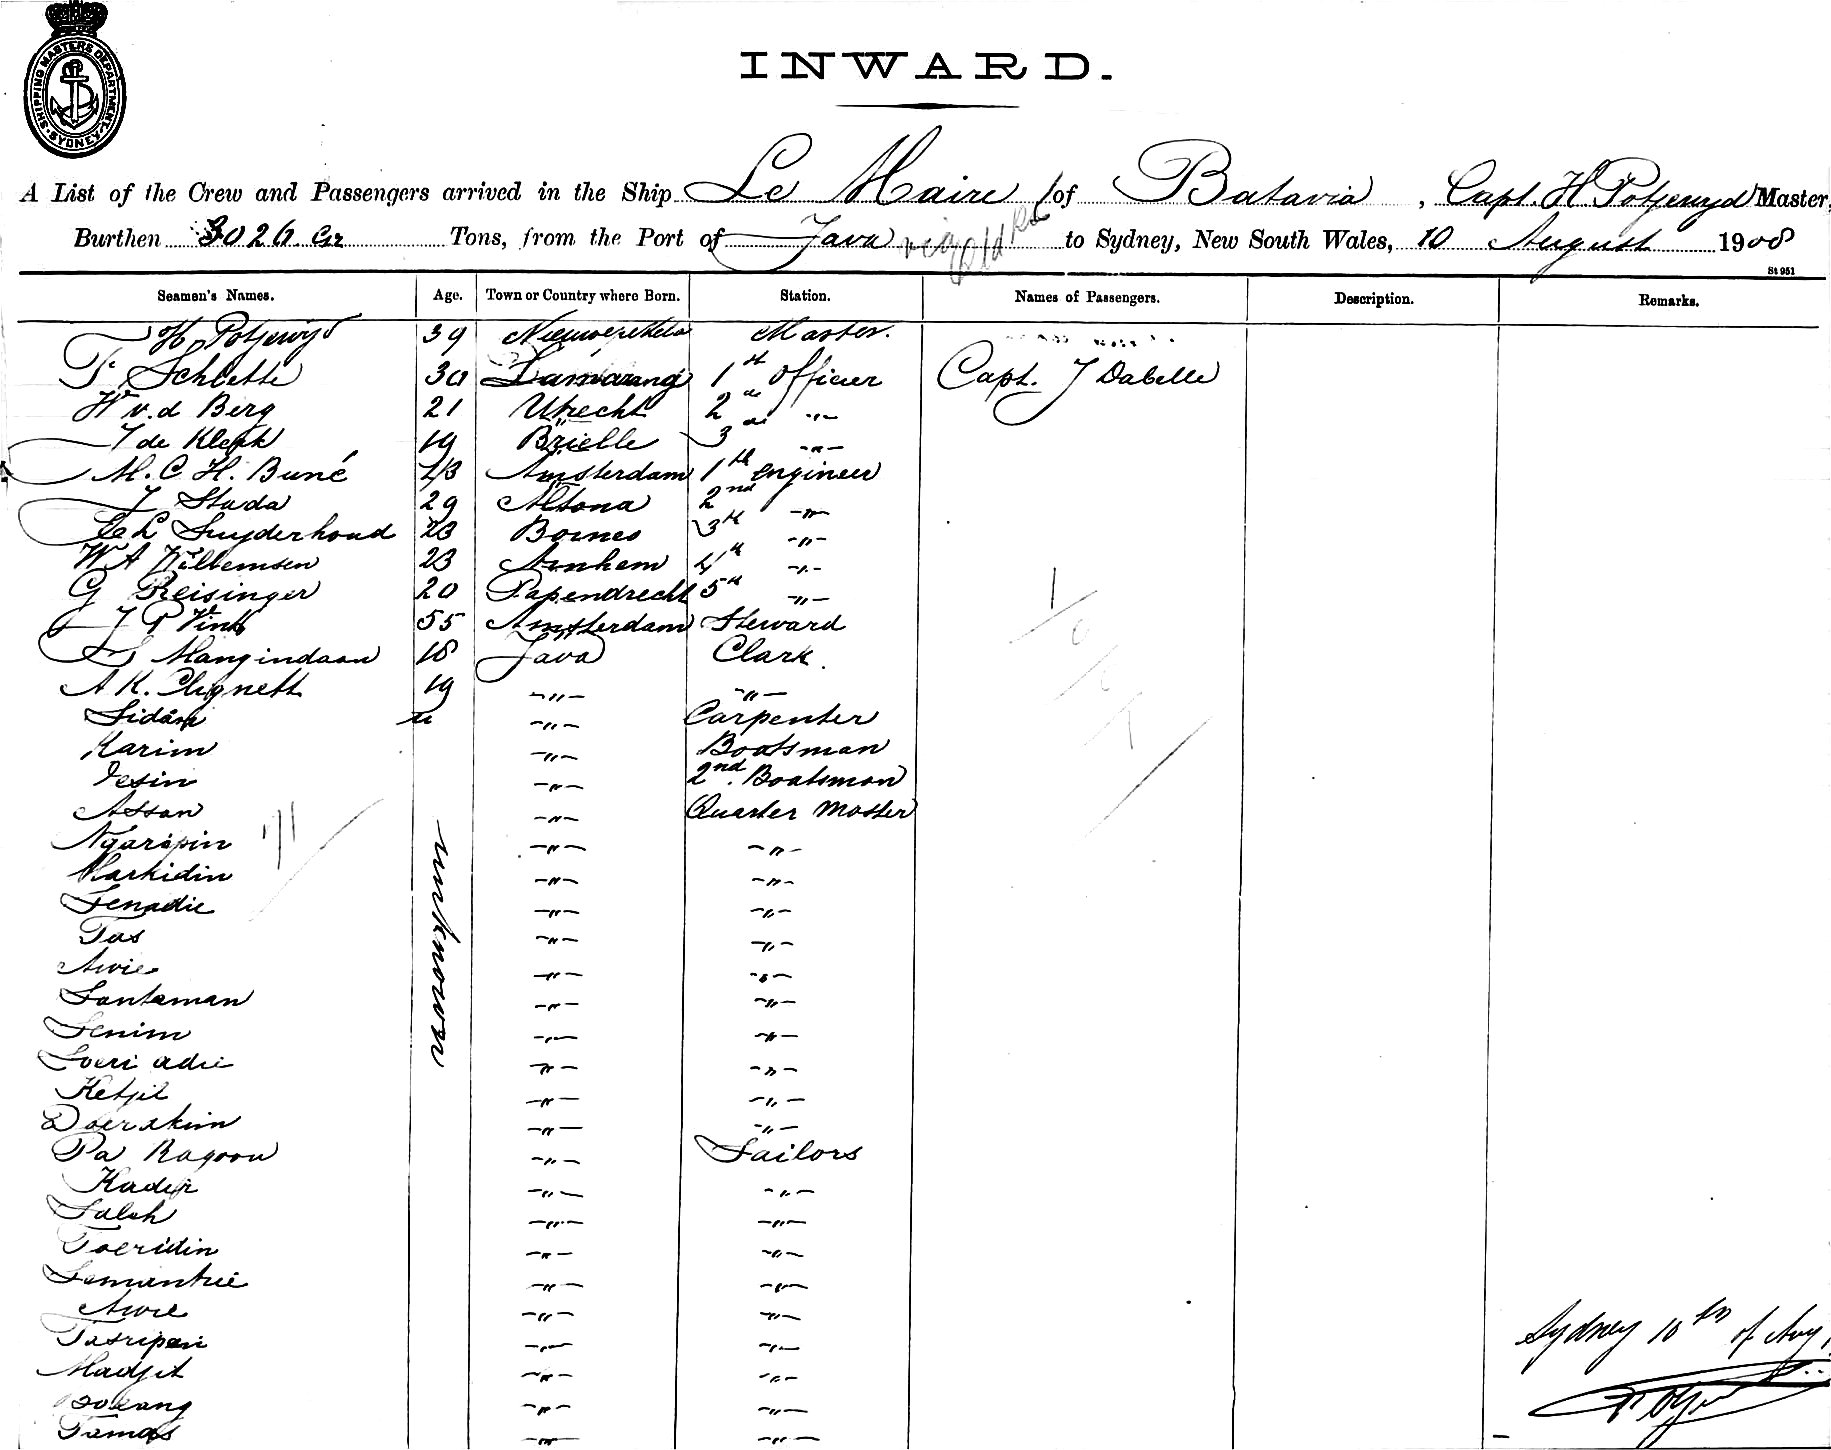 SHIPPING MASTERS DEPARTMENT. SYDNEY
INWARD.
A List of the Crew and Passengers arrived in the Ship Le Maire of Batavia, Capt. H Potjewyd Master,
Burthen 3026 Gr Tons, from the Port of Java via to Sydney, New South Wales, 10 August 1908
St 951
Seamen's Names. Age. Town or Country where Born. Station. Names of Passengers. Description. Remarks.
H Potjewijd 39 Master.
F. Schlette 30 Samarang 1st Officer Capt. J Dabelle
W v.d Berg 21 Utrecht 2de -"-
J de Klerk 19 Brielle 3de -"-
M. C H. Buné 43 Amsterdam 1th engineer
J Stada 29 Altona 2nd -"-
Ch L Suyderhoud 23 Borneo 3th -"-
W A Willemsen 23 Arnhem 4th -"-
G Reisinger 20 Papendrecht 5th -"-
J P Vink 55 Amsterdam Steward
Mangindaan 18 Java Clark.
A K. Clignett 19 -"- -"-
Sidân -"- Carpenter
Karim -"- Boatsman
Jesin -"- 2nd. Boatsman
Assan -"- Quarter Master
Ngaripin -"- -"-
Markidin -"- -"-
unknown
Senadie -"- -"-
Tas -"- -"-
Awie -"- -"-
Santaman -"- -"-
Senim -"- -"-
Soeri adie -"- -"-
Ketjil -"- -"-
Doerakim -"- -"-
Pa Ragoon -"- Sailors
Kadir -"- -"-
Saleh -"- -"-
Toeridin -"- -"-
Semantrie -"- -"-
Awie -"- -"-
Tasripin -"- -"-
Madjit -"- -"-
Boeang -"- -"-
Tamas -"- -"-
Sydney 10th of Aug